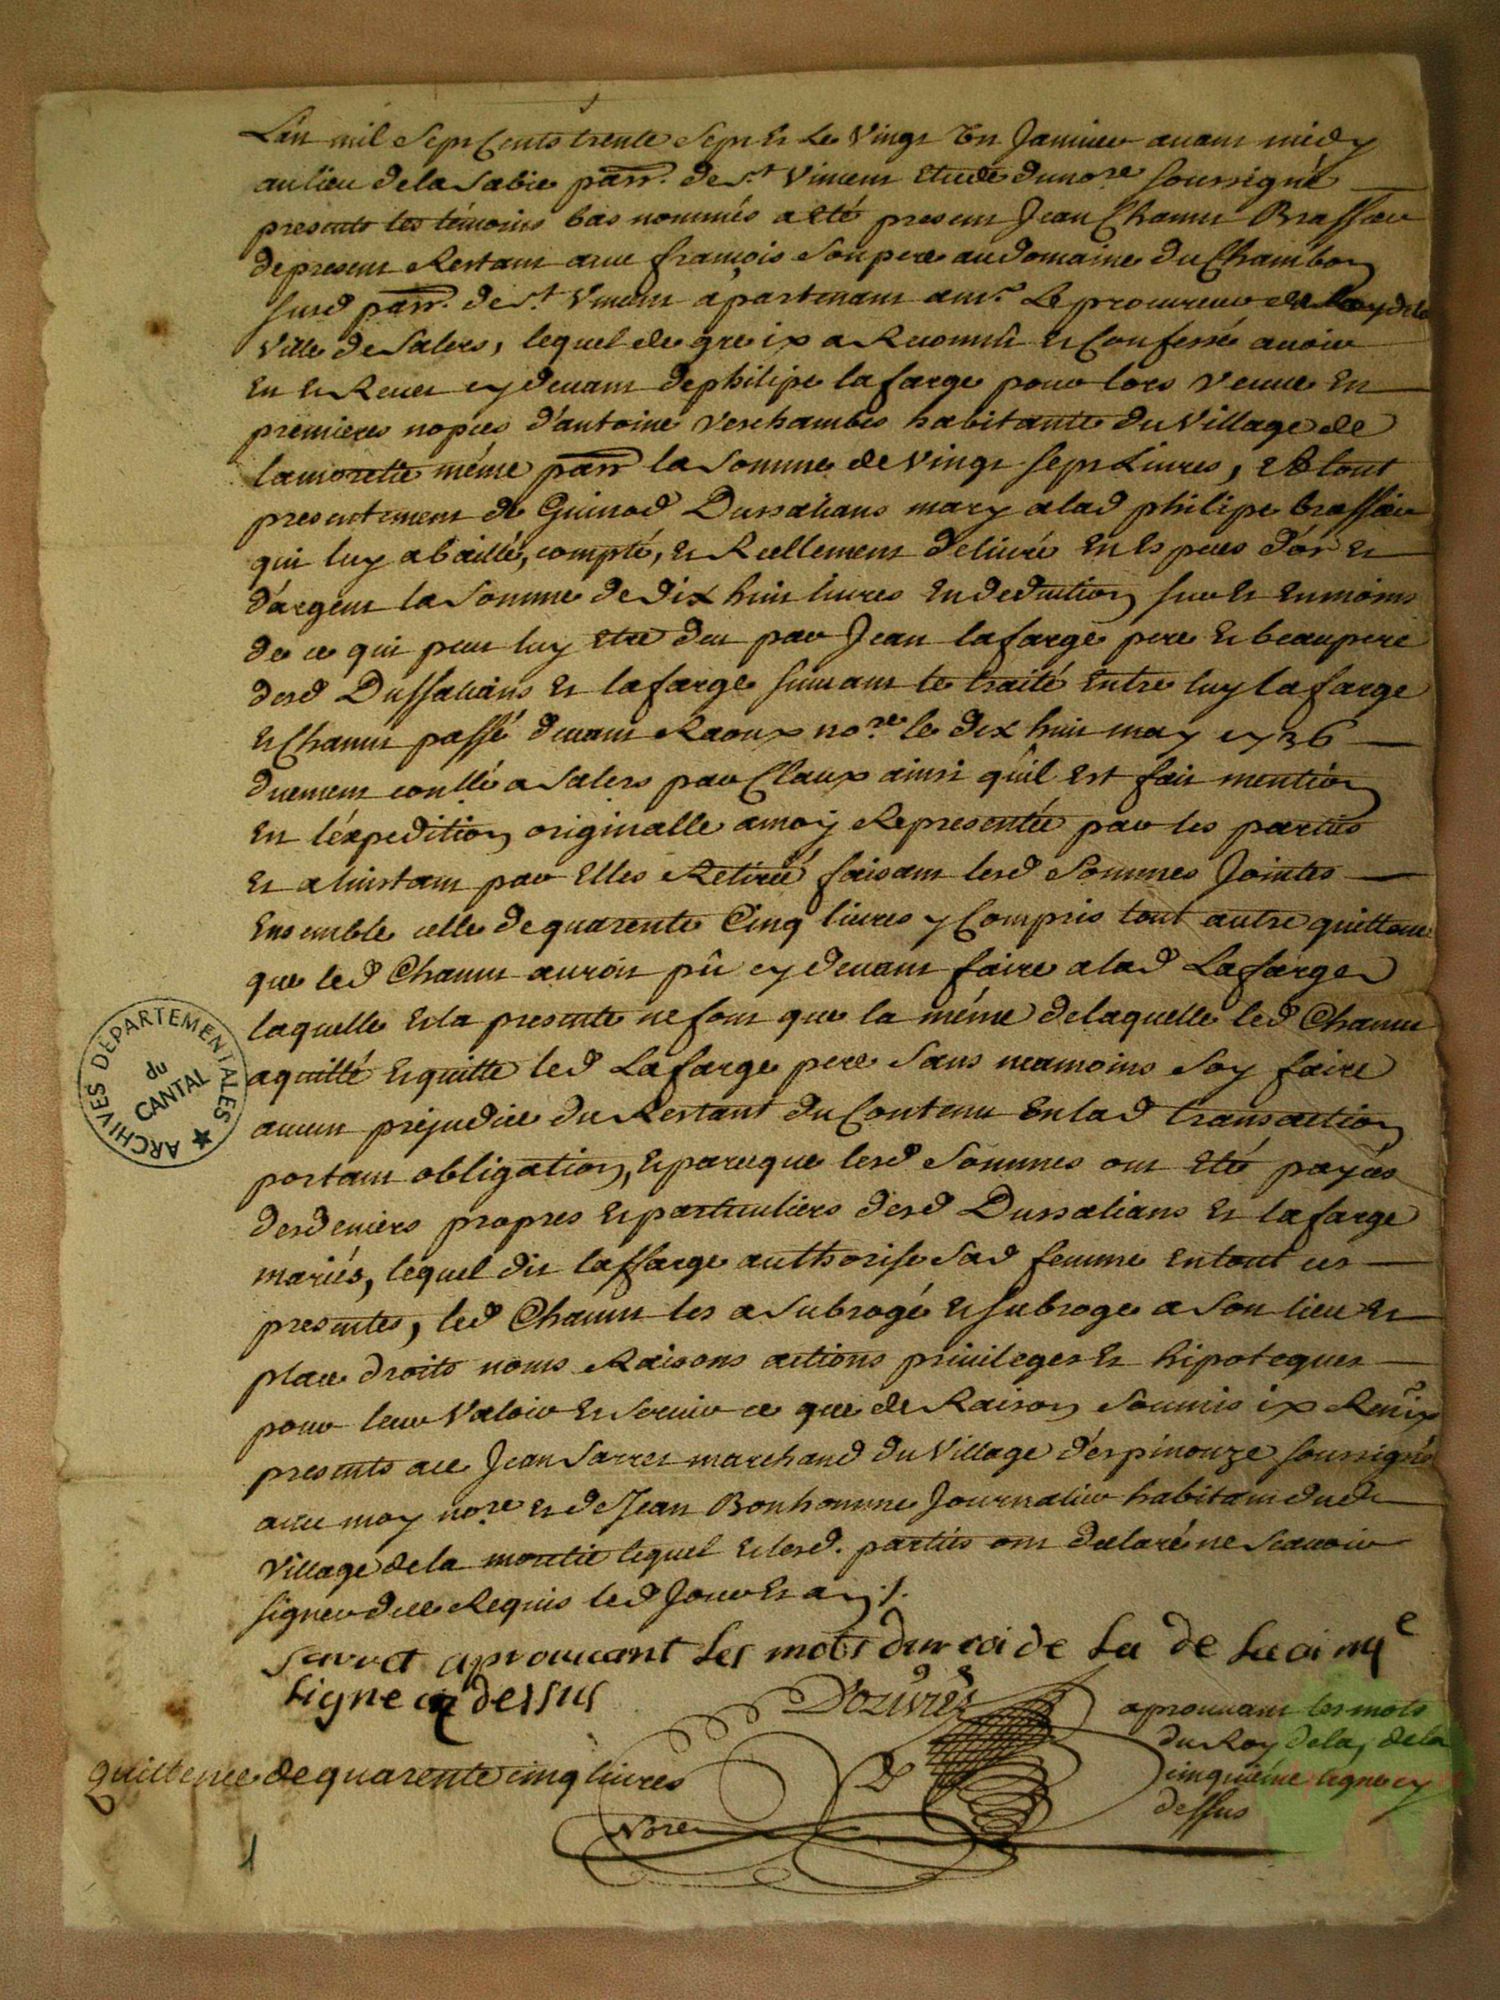 L'an mil sept cents trente sept et le vingt un janvier avant midy
au lieu de la Sabie parr. de St Vincent etude du nore soussigné
presents les témoins bas nommés a été present Jean Chanut Brassier
de present restant avec françois son pere au domaine du Chambon
susd parr. de St Vincent apartenant a mr. Le procureur du Roy de la
Ville de Salers, lequel de gre ix a reconnû et Confessé avoir
eu et Receu cy devant de philipe lafarge pour lors veuve en
premieres nopces d'antoine Verchambes habitante du Village de
lamoretie méme parr la somme de vingt sept Livres, et tout
presentement de Guinod Dussalians mary a lad philipe brassier
qui luy a baillé, compté, et Reellement delivré en especes d'ór et
d'argent la somme de dix huit livres en deduction sur et en moins
de ce qui peut luy etre deu par Jean lafarge pere et beaupere
desd Dussalians et lafarge suivant le traité entre luy lafarge
et Chanut passé devant Raoux nore le dix huit may 1736
duement conllé a Salers par Claux ainsi qu'il est fait mention
en l'éxpedition originalle a moy Representée par les parties
et a linstant par Elles Retirée faisant lesd sommes Jointes
ensemble celle de quarente Cinq livres y Compris tout autre quittance
que led Chanut auroit pû cy devant faire a lad Lafarge
laquelle et la presente ne font que la méme de laquelle led Chanut
a quitté et quitte led Lafarge pere sans neamoins soy faire
aucun préjudice du Restant du Contenu en lad transaction
portant obligation, et parceque lesd sommes ont eté payées
des deniers propres et particuliers desd Dussalians et lafarge
mariés, lequel dit laffarge authorise sad femme en tout ces
presentes, led Chanut les a subrogé et subroge a son lieu et
place droits noms Raisons actions privileges et hipoteques
pour leur Valoir et servir ce que de Raison soumis ix Renix
presents a ce Jean Sarret marchand du Village d'espinouze soussigné
avec moy nore et de Jean Bonhomme Journalier habitant dud
Village de la moretie lequel et lesd. parties ont declaré ne scavoir
signer de ce Requis led Jour et an ./.
Sarret aprouvant Les mots du roi de La de La cinqe
Ligne cy dessus
D'ozivrés
aprouvant les mots
du Roy de la, de la
cinquiéme ligne cy
dessus
quittence de quarente cinq livres
Nore
1
ARCHIVES DÉPARTEMENTALES
du
CANTAL